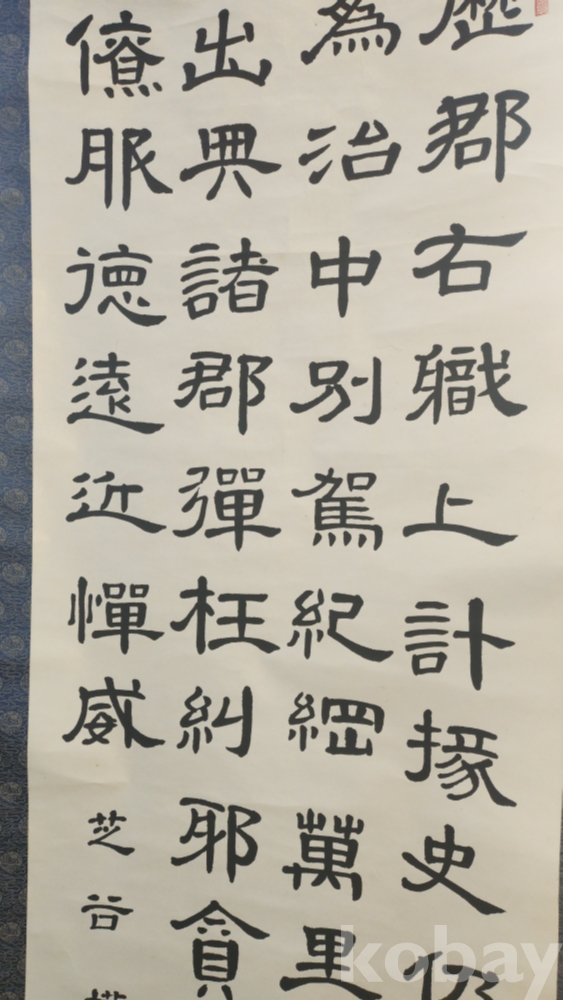 歷郡右職上計掾史仍
為治中別駕紀綱萬里
出典諸郡彈枉糾邪貪
僚服德遠近憚威
芝谷
kobay